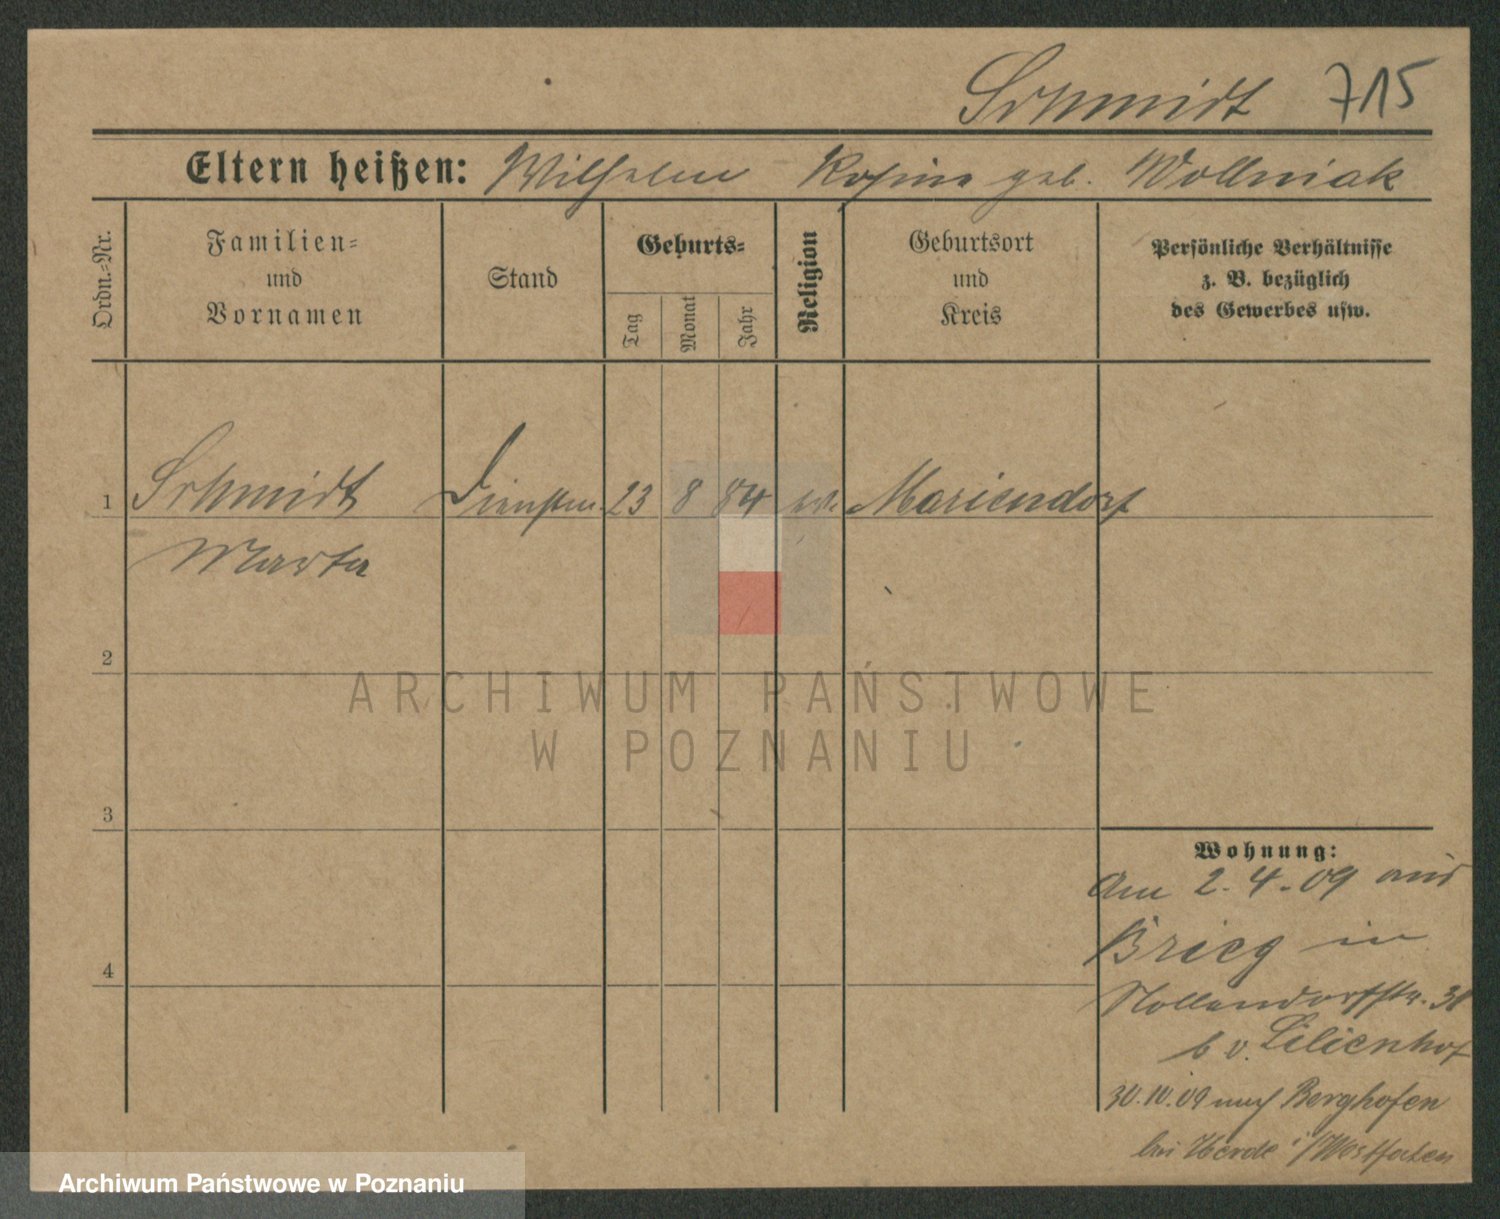 Schmidt 715
Eltern heißen: Wilhelm Rosine geb. Wollniak
Ordn.-Nr.
Familien-
und
Vornamen
Stand
Geburts-
Tag
Monat
Jahr
Religion
Geburtsort
und
Kreis
Persönliche Verhältnisse
z. B. bezüglich
des Gewerbes usw.
1 Schmidt Dienstm. 23 8 84 ev. Mariendorf
Marta
2
3
4
Wohnung:
Am 2.4.09 aus
Brieg in
Nollendorfstr. 38
b v. Lilienhof
30.10.09 nach Berghofen
bei Herde i/Westfalen
ARCHIWUM PAŃSTWOWE
W POZNANIU
Archiwum Państwowe w Poznaniu